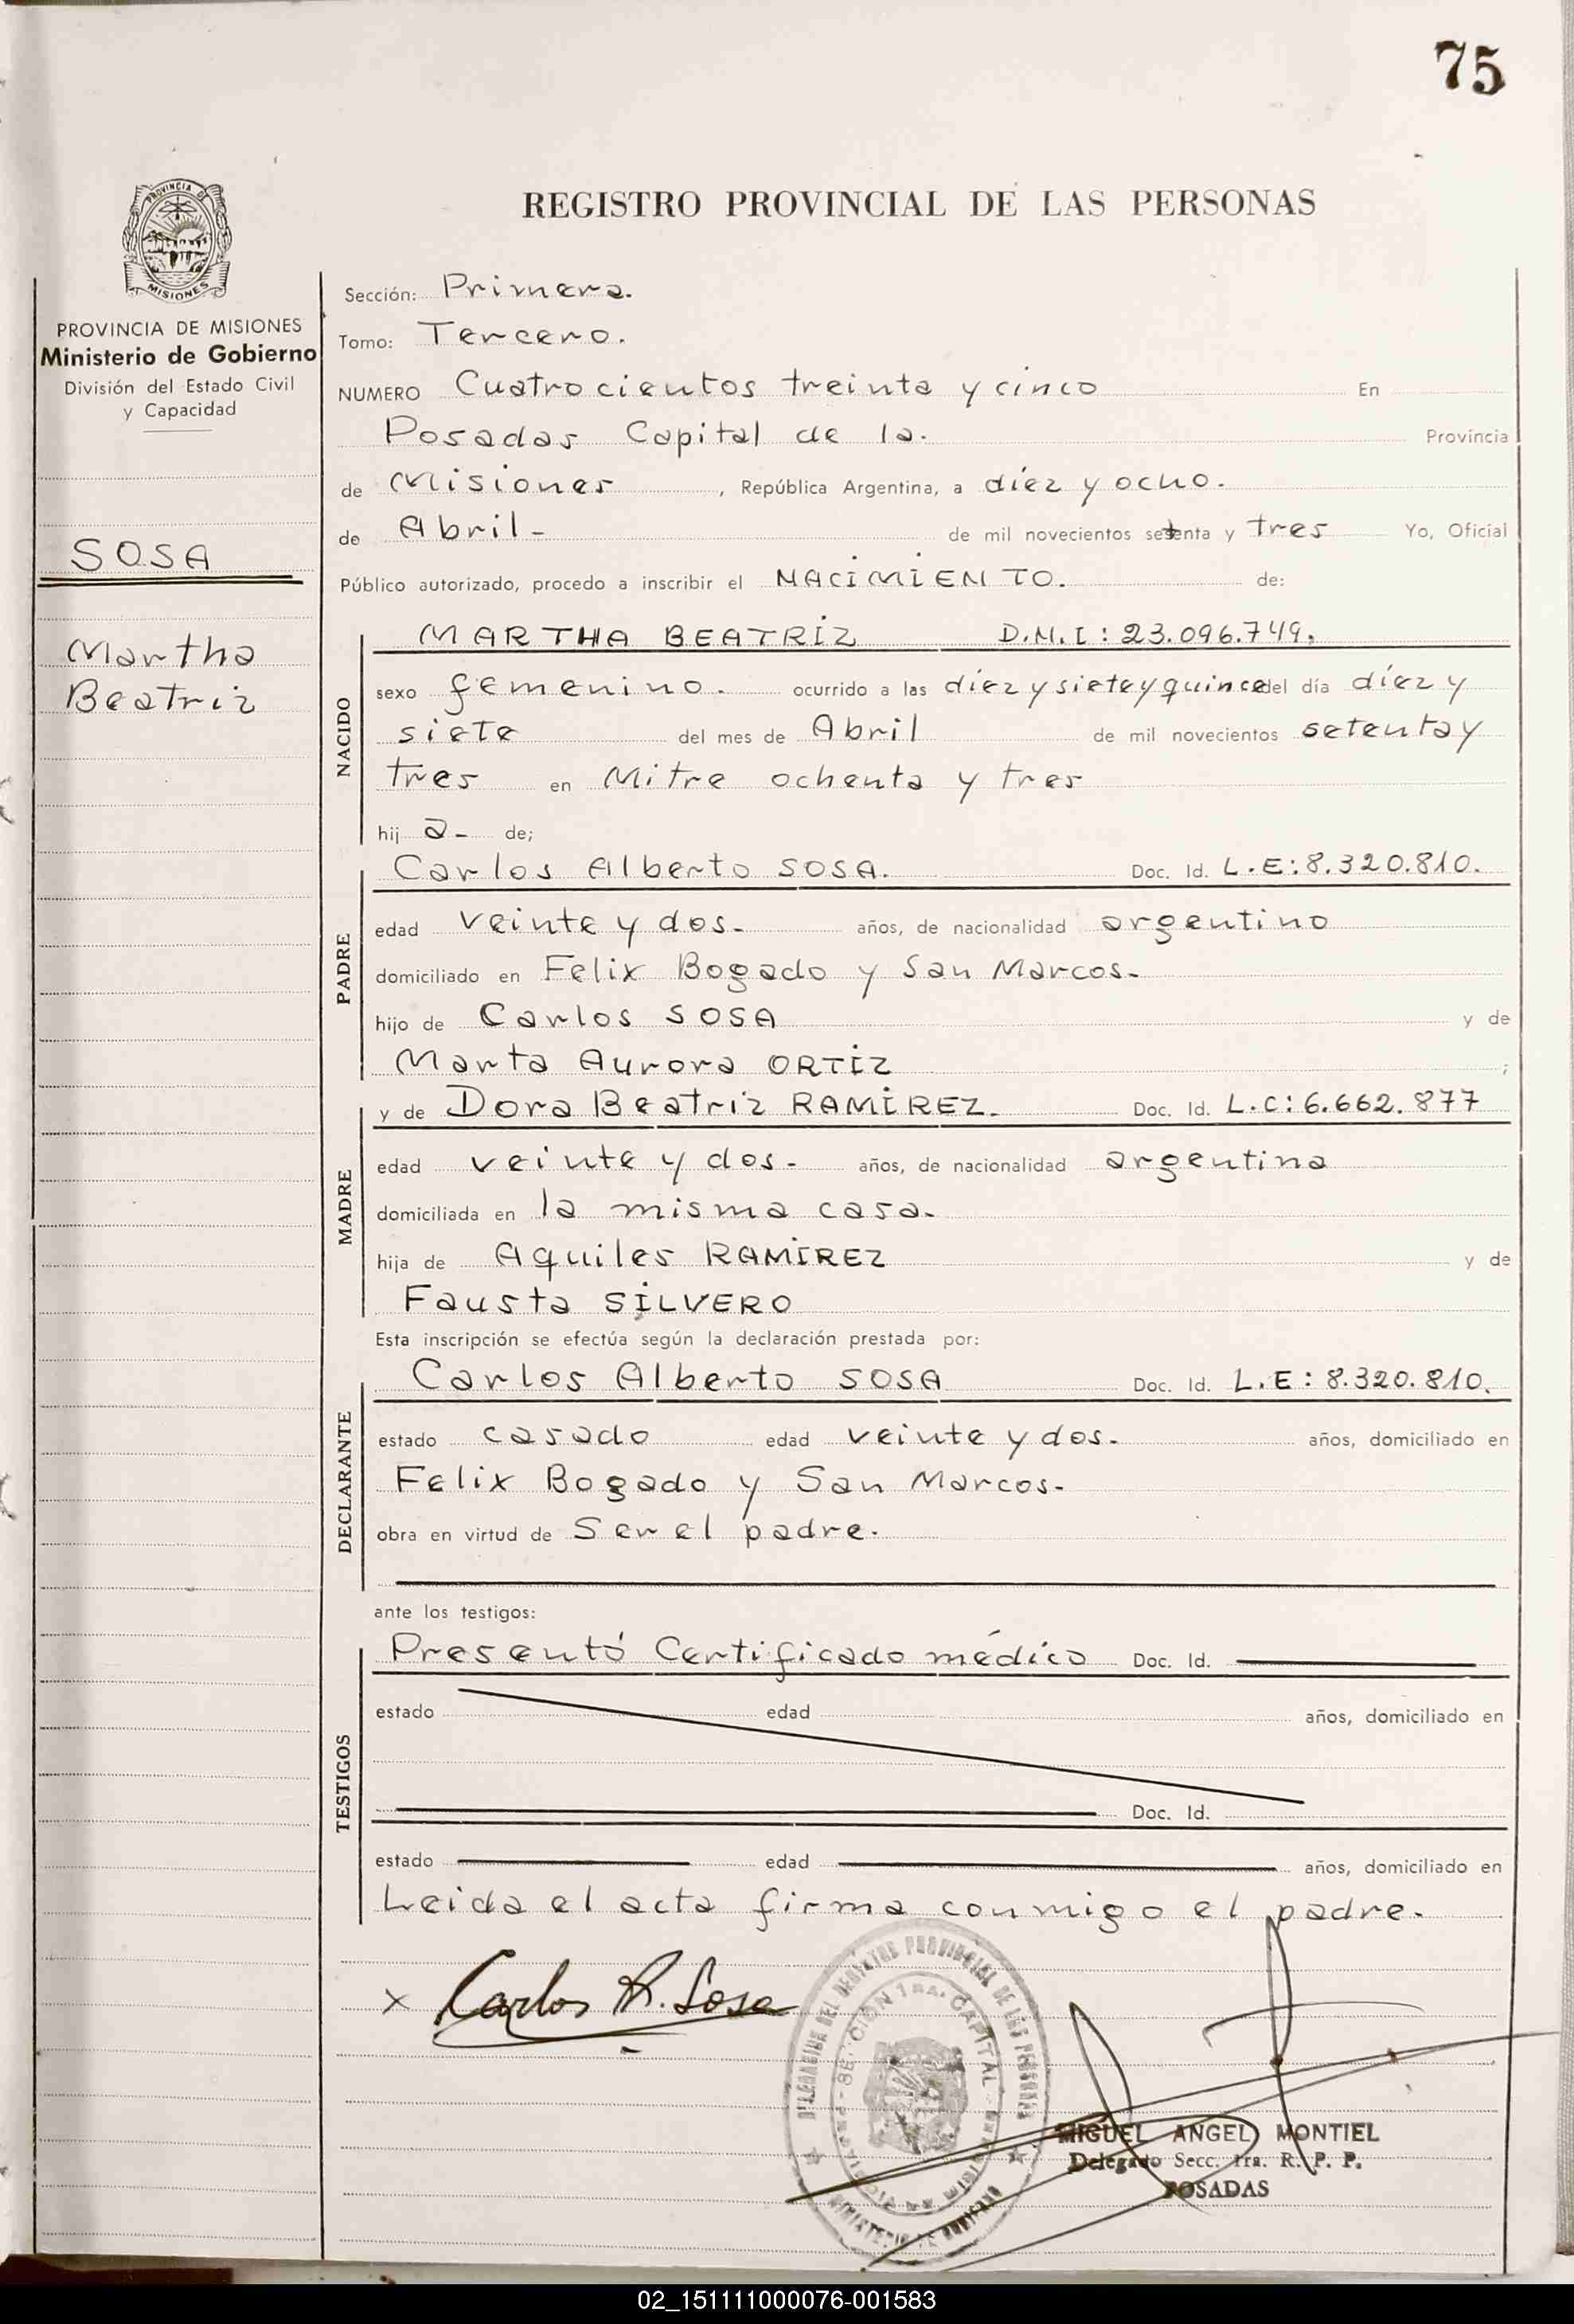 75
PROVINCIA DE
MISIONES
PROVINCIA DE MISIONES
Ministerio de Gobierno
División del Estado Civil
y Capacidad
SOSA
Martha
Beatriz
REGISTRO PROVINCIAL DE LAS PERSONAS
Sección: Primera.
Tomo: Tercero.
NUMERO Cuatrocientos treinta y cinco En
Posadas Capital de la. Provincia
de Misiones , República Argentina, a diez y ocho.
de Abril - de mil novecientos setenta y tres Yo, Oficial
Público autorizado, procedo a inscribir el NACIMIENTO. de:
NACIDO
MARTHA BEATRIZ D.N.I: 23.096.749.
sexo femenino. ocurrido a las diez y siete y quince del día diez y
siete del mes de Abril de mil novecientos setenta y
tres en Mitre ochenta y tres
hij a- de;
PADRE
Carlos Alberto SOSA. Doc. Id. L.E: 8.320.810.
edad veinte y dos- años, de nacionalidad argentino
domiciliado en Felix Bogado y San Marcos-
hijo de Carlos SOSA y de
Marta Aurora ORTIZ ;
MADRE
y de Dora Beatriz RAMIREZ. Doc. Id. L.C: 6.662.877
edad veinte y dos- años, de nacionalidad argentina
domiciliada en la misma casa-
hija de Aquiles RAMIREZ y de
Fausta SILVERO
Esta inscripción se efectúa según la declaración prestada por:
DECLARANTE
Carlos Alberto SOSA Doc. Id. L.E: 8.320.810.
estado casado edad veinte y dos- años, domiciliado en
Felix Bogado y San Marcos-
obra en virtud de Ser el padre.
ante los testigos:
TESTIGOS
Presentó Certificado médico Doc. Id.
estado edad años, domiciliado en
Doc. Id.
estado edad años, domiciliado en
Leida el acta firma conmigo el padre-
x Carlos A. Sosa
DELEGACION DEL REGISTRO PROVINCIAL DE LAS PERSONAS
SECCION 1RA. CAPITAL
MINISTERIO DE GOBIERNO
MIGUEL ANGEL MONTIEL
Delegado Secc. 1ra. R. P. P.
POSADAS
02_151111000076-001583